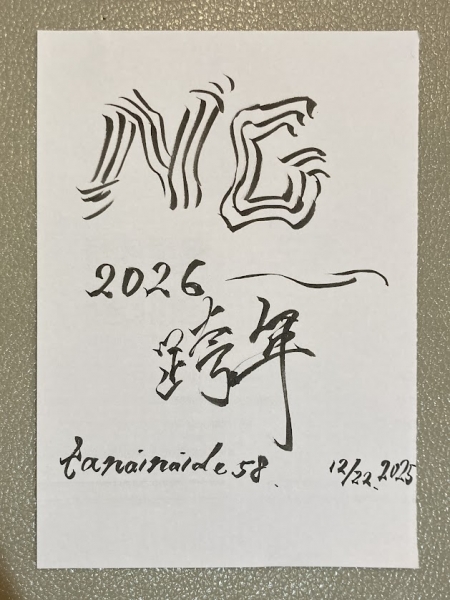 NG
2026
跨年
tanainaide58. 12/22.2025